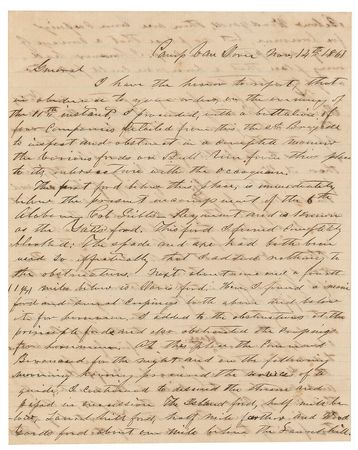 Camp Van Dorn Nov. 14th 1861
General
I have the honor to report, that
in obedience to your order, on the evening of
the 11th instant, I proceeded, with a battalion of
four Companies detailed from this, the 4th Brigade
to inspect and obstruct in a complete manner
the various fords on Bull Run from this place
to its intersection with the Occoquan.
The first ford below this place, is immediately
below the present encampment of the 6th
Alabama Col. Regiment and is known
as the Yates ford. This ford I found completely
blocked. The spade and axe had both been
used so effectually that I added nothing to
the obstructions. Next about one and a fourth
(1¼) miles below is Davis ford. Here I found a main
ford and several crossings both above and below
it for horsemen. I added to the obstructions at the
principle ford and also obstructed the crossings
for horsemen. At this place the Command
Bivouaced for the night and on the following
morning having procured the service of a
guide, I continued to descend the stream and
passed in succession The Island ford, half mile be-
low, Laurel hill ford, half mile further and Wood
yards ford about one mile below the Laurel hill.